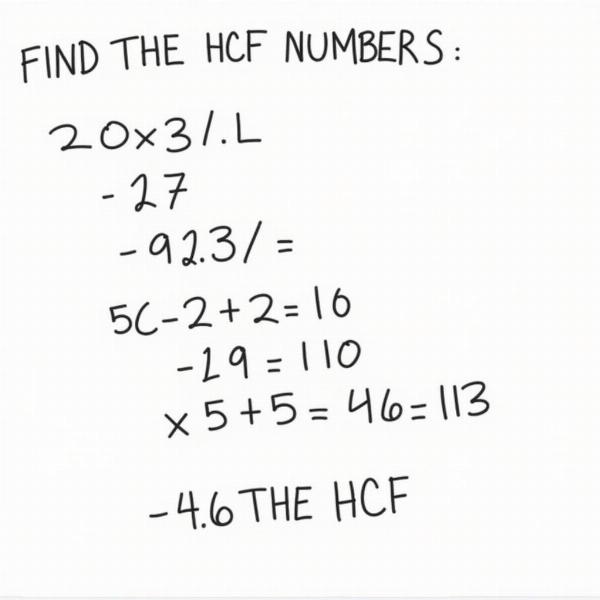 FIND THE HCF NUMBERS:
20×3/.L
-27
-92.3/=
5C-2+2=10
-19=110
×5+5=46=113
-4.6 THE HCF